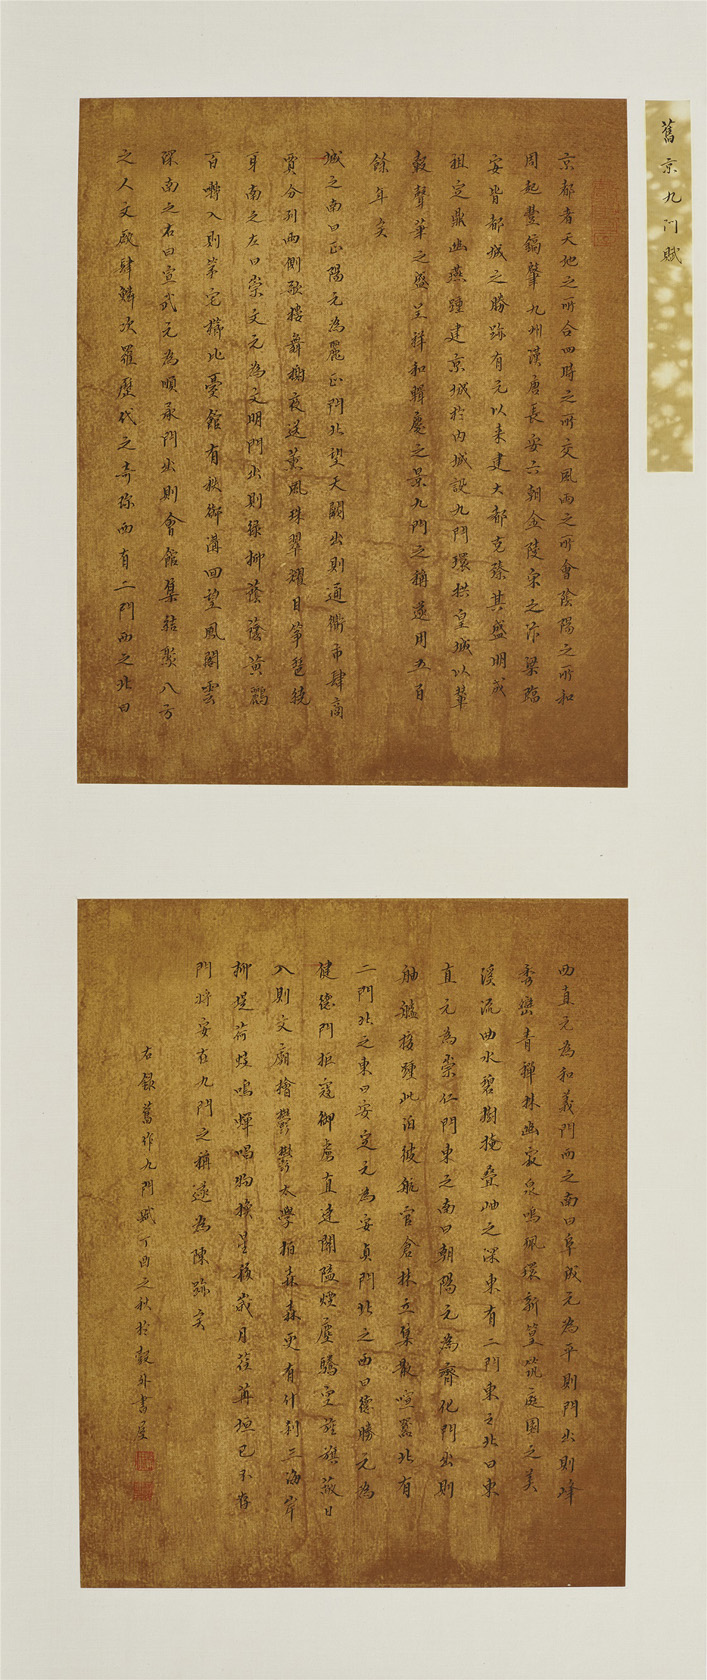 舊京九門賦
京都者天地之所合四時之所交風雨之所會陰陽之所和
周起豐鎬肇九州漢唐長安六朝金陵宋之汴梁臨
安皆都城之勝跡有元以來建大都克臻其盛明成
祖定鼎幽燕踵建京城於內城設九門環拱皇城以輦
轂聲華之盛呈祥和輯慶之景九門之稱遂用五百
餘年矣
城之南曰正陽元為麗正門北望天闕出則通衢市肆商
賈分列兩側歌樓舞榭夜送薰風珠翠耀日箏琶繞
耳南之左曰崇文元為文明門出則綠柳蔭蔭黃鸝
百囀入則第宅櫛比憂館有秋御溝回望鳳閣雲
深南之右曰宣武元為順承門出則會館集結聚八方
之人文廠肆鱗次羅歷代之奇珍西有二門西之北曰
西直元為和義門西之南曰阜成元為平則門出則峰
秀巒青禪林幽寂泉鳴珮環新篁筑庭園之美
溪流曲水碧樹掩疊岫之深東有二門東之北曰東
直元為崇仁門東之南曰朝陽元為齊化門出則
舳艫接踵此泊彼航官倉林立集散喧囂北有
二門北之東曰安定元為安貞門北之西曰德勝元為
健德門拒寇御虜直達關隘煙塵驕空旌旗蔽日
入則文廟檜鬱鬱太學柏森森更有什剎三海岸
柳堤荷蛙鳴蟬唱物換星移歲月荏苒垣已不存
門將安在九門之稱遂為陳跡矣
右錄舊作九門賦丁酉之秋於穀外書屋